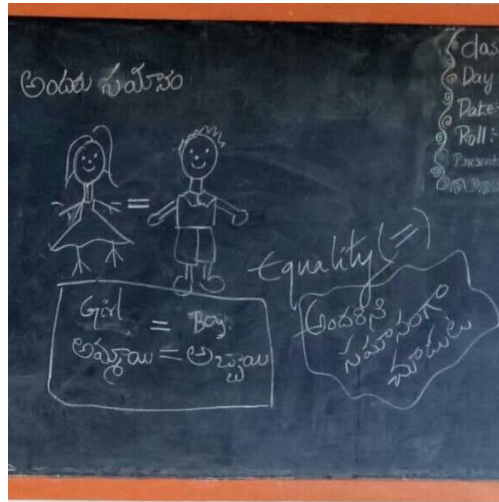 అందరు సమానం
Class
Day
Date
Roll:
Present
=
Equality (=)
Girl = Boy
అమ్మాయి = అబ్బాయి
అందరిని
సమానంగా